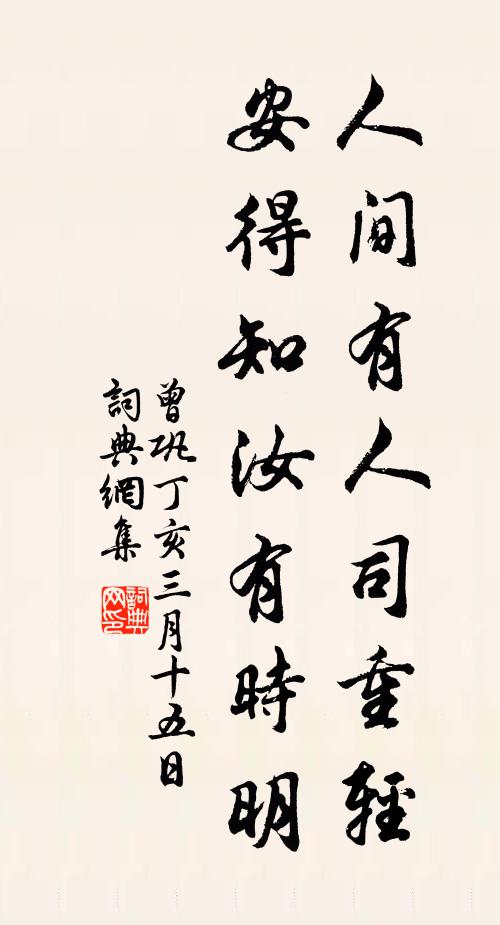 人間有人司重輕
安得知汝有時明
曾巩丁亥三月十五日
詞典網集
詞典
网印